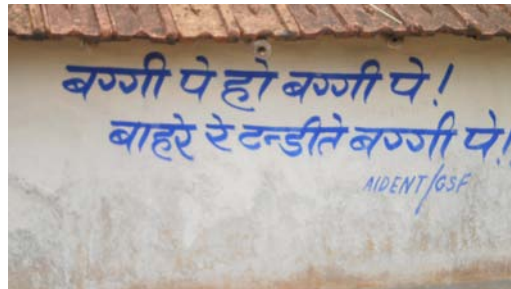 बग्गी पे हो बग्गी पे!
बाहरे रे टन्डीते बग्गी पे!
AIDENT/GSF